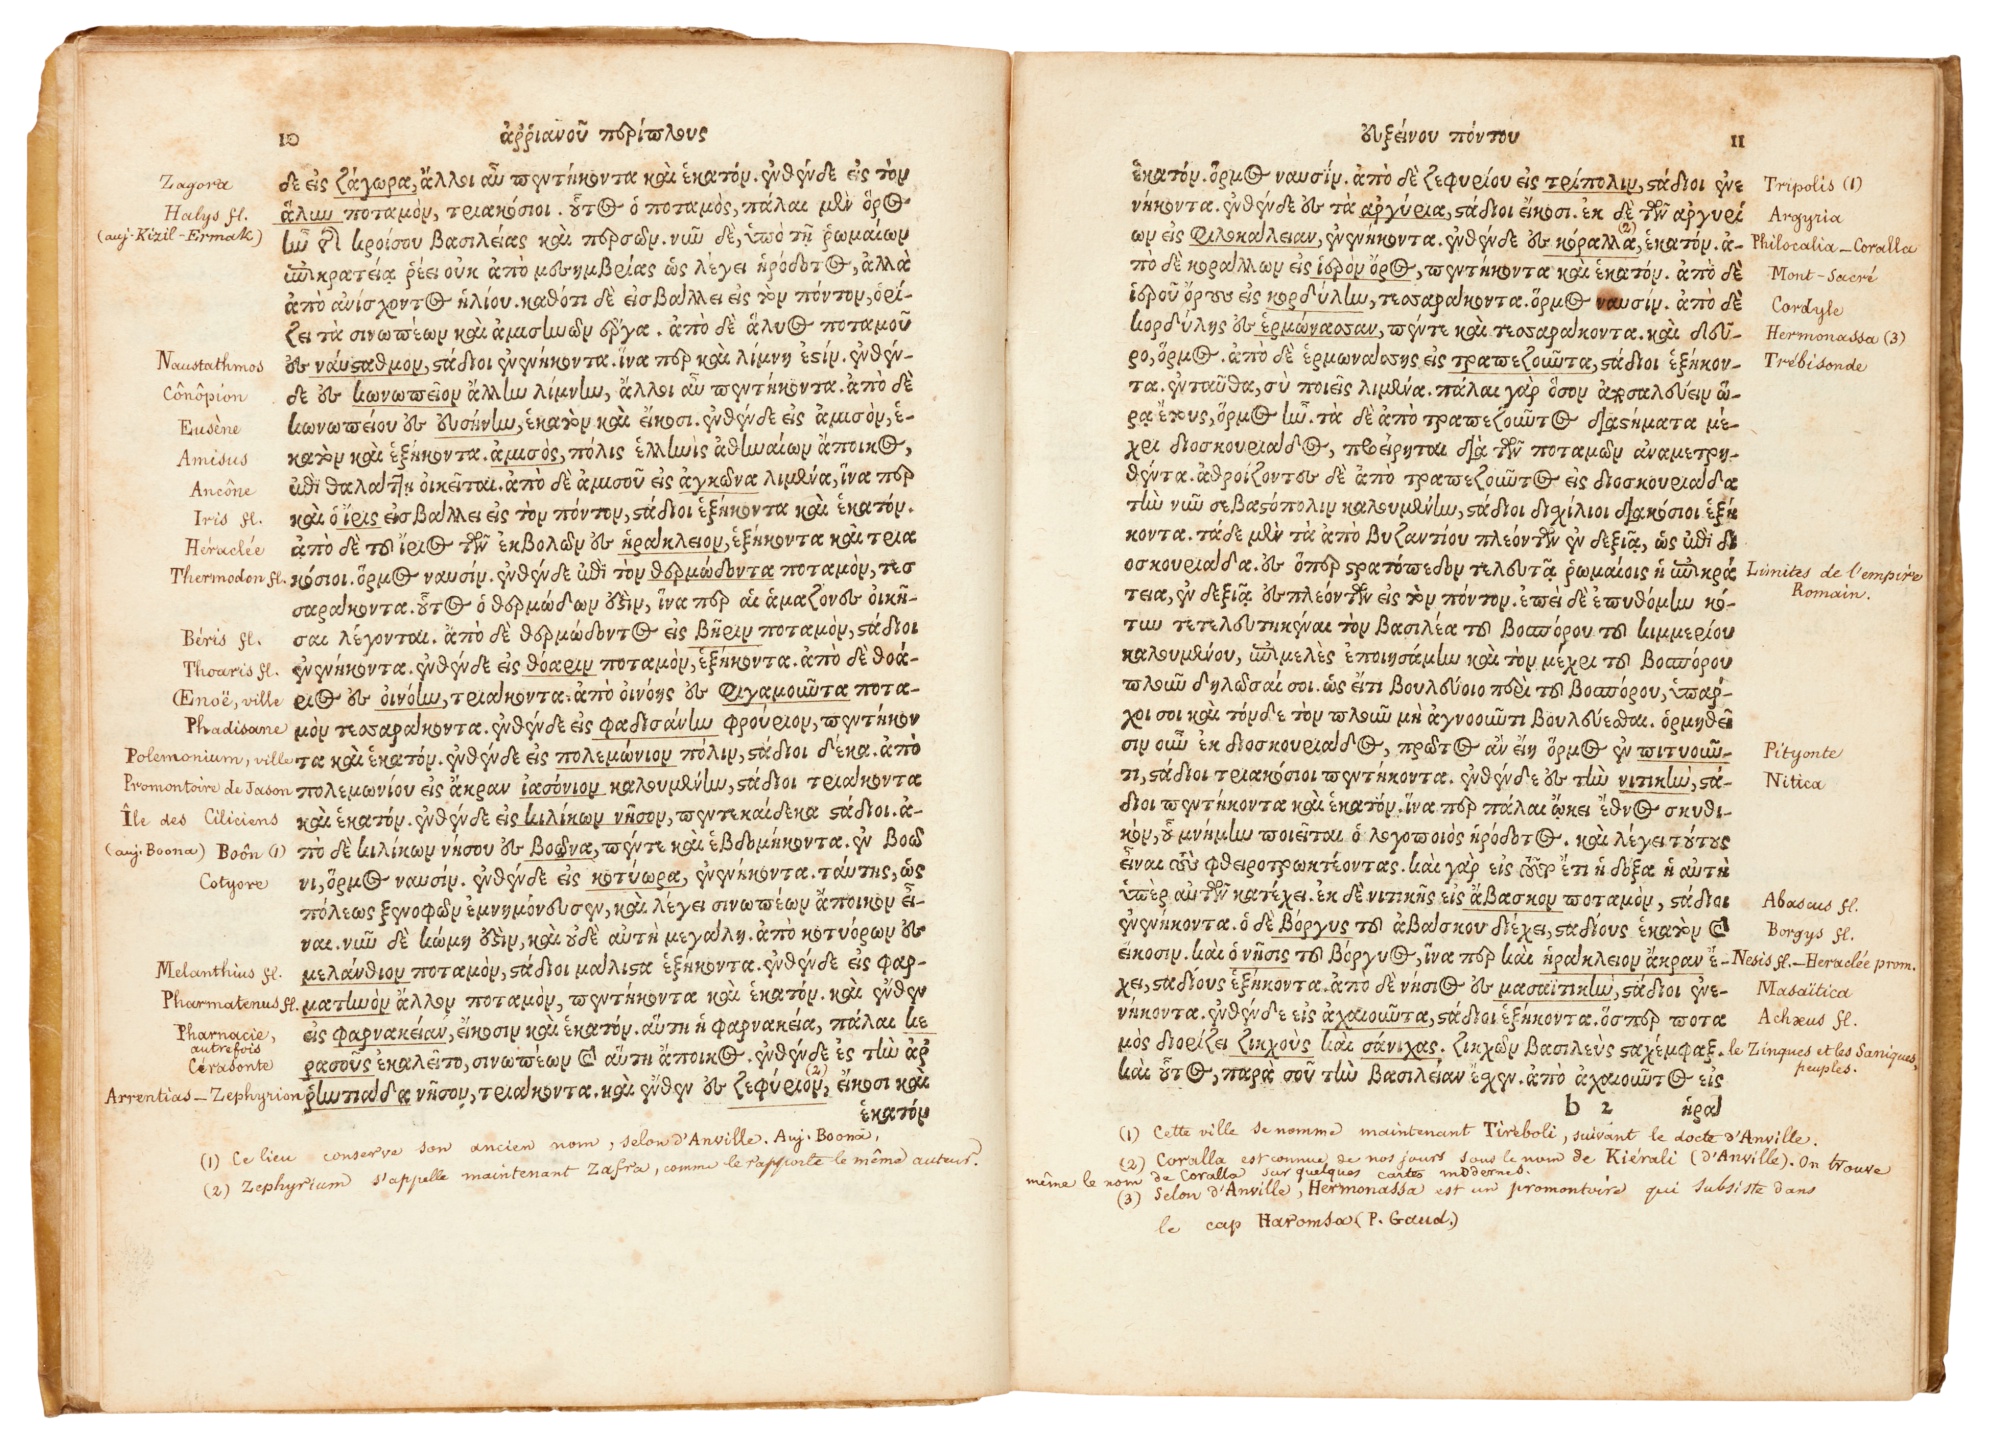 10
ἀῤῥιανοῦ περίπλους
δὲ εἰς ζάγωρα, ἄλλοι αὖ πεντήκοντα καὶ ἑκατόν. ἐνθένδε εἰς τὸν
ἅλυν ποταμὸν, τριακόσιοι. οὗτος ὁ ποταμὸς, πάλαι μὲν ὅρος
ἦν τῆς κροίσου βασιλείας καὶ περσῶν. νῦν δὲ, ὑπὸ τῇ ῥωμαίων
ἐπικρατείᾳ ῥέει οὐκ ἀπὸ μεσημβρίας ὡς λέγει ἡρόδοτος, ἀλλὰ
ἀπὸ ἀνίσχοντος ἡλίου. καθότι δὲ εἰσβάλλει εἰς τὸν πόντον, ὁρί-
ζει τὰ σινωπέων καὶ ἀμισηνῶν ἔργα. ἀπὸ δὲ ἅλυος ποταμοῦ
ἐς ναύσταθμον, στάδιοι ἐννενήκοντα. ἵνα περ καὶ λίμνη ἐστίν. ἐνθέν-
δε ἐς κωνωπεῖον ἄλλην λίμνην, ἄλλοι αὖ πεντήκοντα. ἀπὸ δὲ
κωνωπείου ἐς εὐσήνην, ἑκατὸν καὶ εἴκοσι. ἐνθένδε εἰς ἀμισὸν, ἑ-
κατὸν καὶ ἑξήκοντα. ἀμισὸς, πόλις ἑλληνὶς ἀθηναίων ἄποικος,
ἐπὶ θαλάττῃ οἰκεῖται. ἀπὸ δὲ ἀμισοῦ εἰς ἀγκῶνα λιμένα, ἵνα περ
καὶ ὁ ἶρις εἰσβάλλει εἰς τὸν πόντον, στάδιοι ἑξήκοντα καὶ ἑκατόν.
ἀπὸ δὲ τοῦ ἴριος τῶν ἐκβολῶν ἐς ἡράκλειον, ἑξήκοντα καὶ τρια
κόσιοι. ὅρμος ναυσίν. ἐνθένδε ἐπὶ τὸν θερμώδοντα ποταμὸν, τεσ
σαράκοντα. οὗτος ὁ θερμώδων ἐστὶν, ἵνα περ αἱ ἁμαζόνες οἰκῆ-
σαι λέγονται. ἀπὸ δὲ θερμώδοντος εἰς βῆριν ποταμὸν, στάδιοι
ἐννενήκοντα. ἐνθένδε εἰς θόαριν ποταμὸν, ἑξήκοντα. ἀπὸ δὲ θοά-
ριος ἐς οἰνόην, τριάκοντα. ἀπὸ οἰνόης ἐς φιγαμοῦντα ποτα-
μὸν τεσσαράκοντα. ἐνθένδε εἰς φαδισάνην φρούριον, πεντήκον
τα καὶ ἑκατόν. ἐνθένδε εἰς πολεμώνιον πόλιν, στάδιοι δέκα. ἀπὸ
πολεμωνίου εἰς ἄκραν ἰασόνιον καλουμένην, στάδιοι τριάκοντα
καὶ ἑκατόν. ἐνθένδε εἰς κιλίκων νῆσον, πεντεκαίδεκα στάδιοι. ἀ-
πὸ δὲ κιλίκων νήσου ἐς βοῶνα, πέντε καὶ ἑβδομήκοντα. ἐν βοῶ
νι, ὅρμος ναυσίν. ἐνθένδε εἰς κοτύωρα, ἐννενήκοντα. ταύτης, ὡς
πόλεως ξενοφῶν ἐμνημόνευσεν, καὶ λέγει σινωπέων ἄποικον εἶ-
ναι. νῦν δὲ κώμη ἐστὶν, καὶ οὐδὲ αὐτὴ μεγάλη. ἀπὸ κοτυόρων ἐς
μελάνθιον ποταμὸν, στάδιοι μάλιστα ἑξήκοντα. ἐνθένδε εἰς φαρ-
ματηνὸν ἄλλον ποταμὸν, πεντήκοντα καὶ ἑκατόν. καὶ ἔνθεν
εἰς φαρνακείαν, εἴκοσιν καὶ ἑκατόν. αὕτη ἡ φαρνακεία, πάλαι κε
ρασοῦς ἐκαλεῖτο, σινωπέων καὶ αὕτη ἄποικος. ἐνθένδε ἐς τὴν ἀρ
ρηντιάδα νῆσον, τριάκοντα. καὶ ἔνθεν ἐς ζεφύριον, (2) εἴκοσι καὶ
ἑκατόν
Zagora
Halys fl.
(auj. Kizil-Ermak)
Naustathmos
Cônôpion
Eusène
Amisus
Ancône
Iris fl.
Héraclée
Thermodon fl.
Béris fl.
Thoaris fl.
Œnoë, ville
Phadisane
Polemonium, ville
Promontoire de Jason
Île des Ciliciens
(auj. Boona) Boôn (1)
Cotyore
Melanthius fl.
Pharmatenus fl.
Pharnacie,
autrefois
Cérasonte
Arrentias _ Zephyrion
(1) Ce lieu conserve son ancien nom, selon d'Anville. Auj. Boona,
(2) Zephyrium s'appelle maintenant Zafra, comme le rapporte le même auteur.
εὐξείνου πόντου
11
ἑκατόν. ὅρμος ναυσίν. ἀπὸ δὲ ζεφυρίου εἰς τρίπολιν, στάδιοι ἐνε
νήκοντα. ἐνθένδε ἐς τὰ ἀργύρια, στάδιοι εἴκοσι. ἐκ δὲ τῶν ἀργυρί
ων εἰς φιλοκάλειαν, ἐννενήκοντα. ἐνθένδε ἐς κόραλλα, (2) ἑκατόν. ἀ-
πὸ δὲ κοράλλων εἰς ἱερὸν ὄρος, πεντήκοντα καὶ ἑκατόν. ἀπὸ δὲ
ἱεροῦ ὄρους εἰς κορδύλην, τεσσαράκοντα. ὅρμος ναυσίν. ἀπὸ δὲ
κορδύλης ἐς ἑρμώνασσαν, πέντε καὶ τεσσαράκοντα. καὶ δεῦ-
ρο, ὅρμος. ἀπὸ δὲ ἑρμωνάσσης εἰς τραπεζοῦντα, στάδιοι ἑξήκον-
τα. ἐνταῦθα, σὺ ποιεῖς λιμένα. πάλαι γὰρ ὅσον ἀποσαλεύειν ὥ-
ρᾳ ἔτους, ὅρμος ἦν. τὰ δὲ ἀπὸ τραπεζοῦντος διαστήματα μέ-
χρι διοσκουριάδος, προείρηται διὰ τῶν ποταμῶν ἀναμετρη-
θέντα. ἀθροίζονται δὲ ἀπὸ τραπεζοῦντος εἰς διοσκουριάδα
τὴν νῦν σεβαστόπολιν καλουμένην, στάδιοι δισχίλιοι διακόσιοι ἑξή
κοντα. τάδε μὲν τὰ ἀπὸ βυζαντίου πλεόντων ἐν δεξιᾷ, ὡς ἐπὶ δι
οσκουριάδα. ἐς ὅπερ στρατόπεδον τελευτᾷ ῥωμαίοις ἡ ἐπικρά
τεια, ἐν δεξιᾷ ἐσπλεόντων εἰς τὸν πόντον. ἐπεὶ δὲ ἐπυθόμην κό-
τυν τετελευτηκέναι τὸν βασιλέα τοῦ βοσπόρου τοῦ κιμμερίου
καλουμένου, ἐπιμελὲς ἐποιησάμην καὶ τὸν μέχρι τοῦ βοσπόρου
πλοῦν δηλῶσαί σοι. ὡς εἴ τι βουλεύοιο περὶ τοῦ βοσπόρου, ὑπάρ-
χοι σοι καὶ τόνδε τὸν πλοῦν μὴ ἀγνοοῦντι βουλεύεσθαι. ὁρμηθεῖ
σιν οὖν ἐκ διοσκουριάδος, πρῶτος ἂν εἴη ὅρμος ἐν πιτυοῦν-
τι, στάδιοι τριακόσιοι πεντήκοντα. ἐνθένδε ἐς τὴν νιτικὴν, στά-
διοι πεντήκοντα καὶ ἑκατόν. ἵνα περ πάλαι ᾤκει ἔθνος σκυθι-
κόν, οὗ μνήμην ποιεῖται ὁ λογοποιὸς ἡρόδοτος. καὶ λέγει τούτους
εἶναι τοὺς φθειροτρωκτέοντας. καὶ γὰρ εἰς τοῦτο ἔτι ἡ δόξα ἡ αὐτὴ
ὑπὲρ αὐτῶν κατέχει. ἐκ δὲ νιτικῆς εἰς ἄβασκον ποταμὸν, στάδιοι
ἐννενήκοντα. ὁ δὲ βόργυς τοῦ ἀβάσκου διέχει, σταδίους ἑκατὸν καὶ
εἴκοσιν. καὶ ὁ νῆσις τοῦ βόργυος, ἵνα περ καὶ ἡράκλειον ἄκραν ἔ-
χει, σταδίους ἑξήκοντα. ἀπὸ δὲ νήσιος ἐς μασαϊτικὴν, στάδιοι ἐνε-
νήκοντα. ἐνθένδε εἰς ἀχαιοῦντα, στάδιοι ἑξήκοντα. ὅσπερ ποτα
μὸς διορίζει ζικχοὺς καὶ σάνιχας. ζικχῶν βασιλεὺς σταχέμφαξ.
καὶ οὗτος, παρὰ σοῦ τὴν βασιλείαν ἔσχεν. ἀπὸ ἀχαιοῦντος εἰς
b 2 ἡρα
Tripolis (1)
Argyria
Philocalia _ Coralla
Mont-Sacré
Cordyle
Hermonassa (3)
Trébisonde
Limites de l'empire
Romain.
Pityonte
Nitica
Abascus fl.
Borgys fl.
Nesis fl. _ Heraclée prom.
Masaïtica
Achæus fl.
le Zinques et les Saniques,
peuples.
(1) Cette ville se nomme maintenant Tireboli, suivant le docte d'Anville.
(2) Coralla est connue de nos jours sous le nom de Kiérali (d'Anville). On trouve
même le nom de Coralla sur quelques cartes modernes.
(3) Selon d'Anville, Hermonassa est un promontoire qui subsiste dans
le cap Haromsa (P. Gaud.)